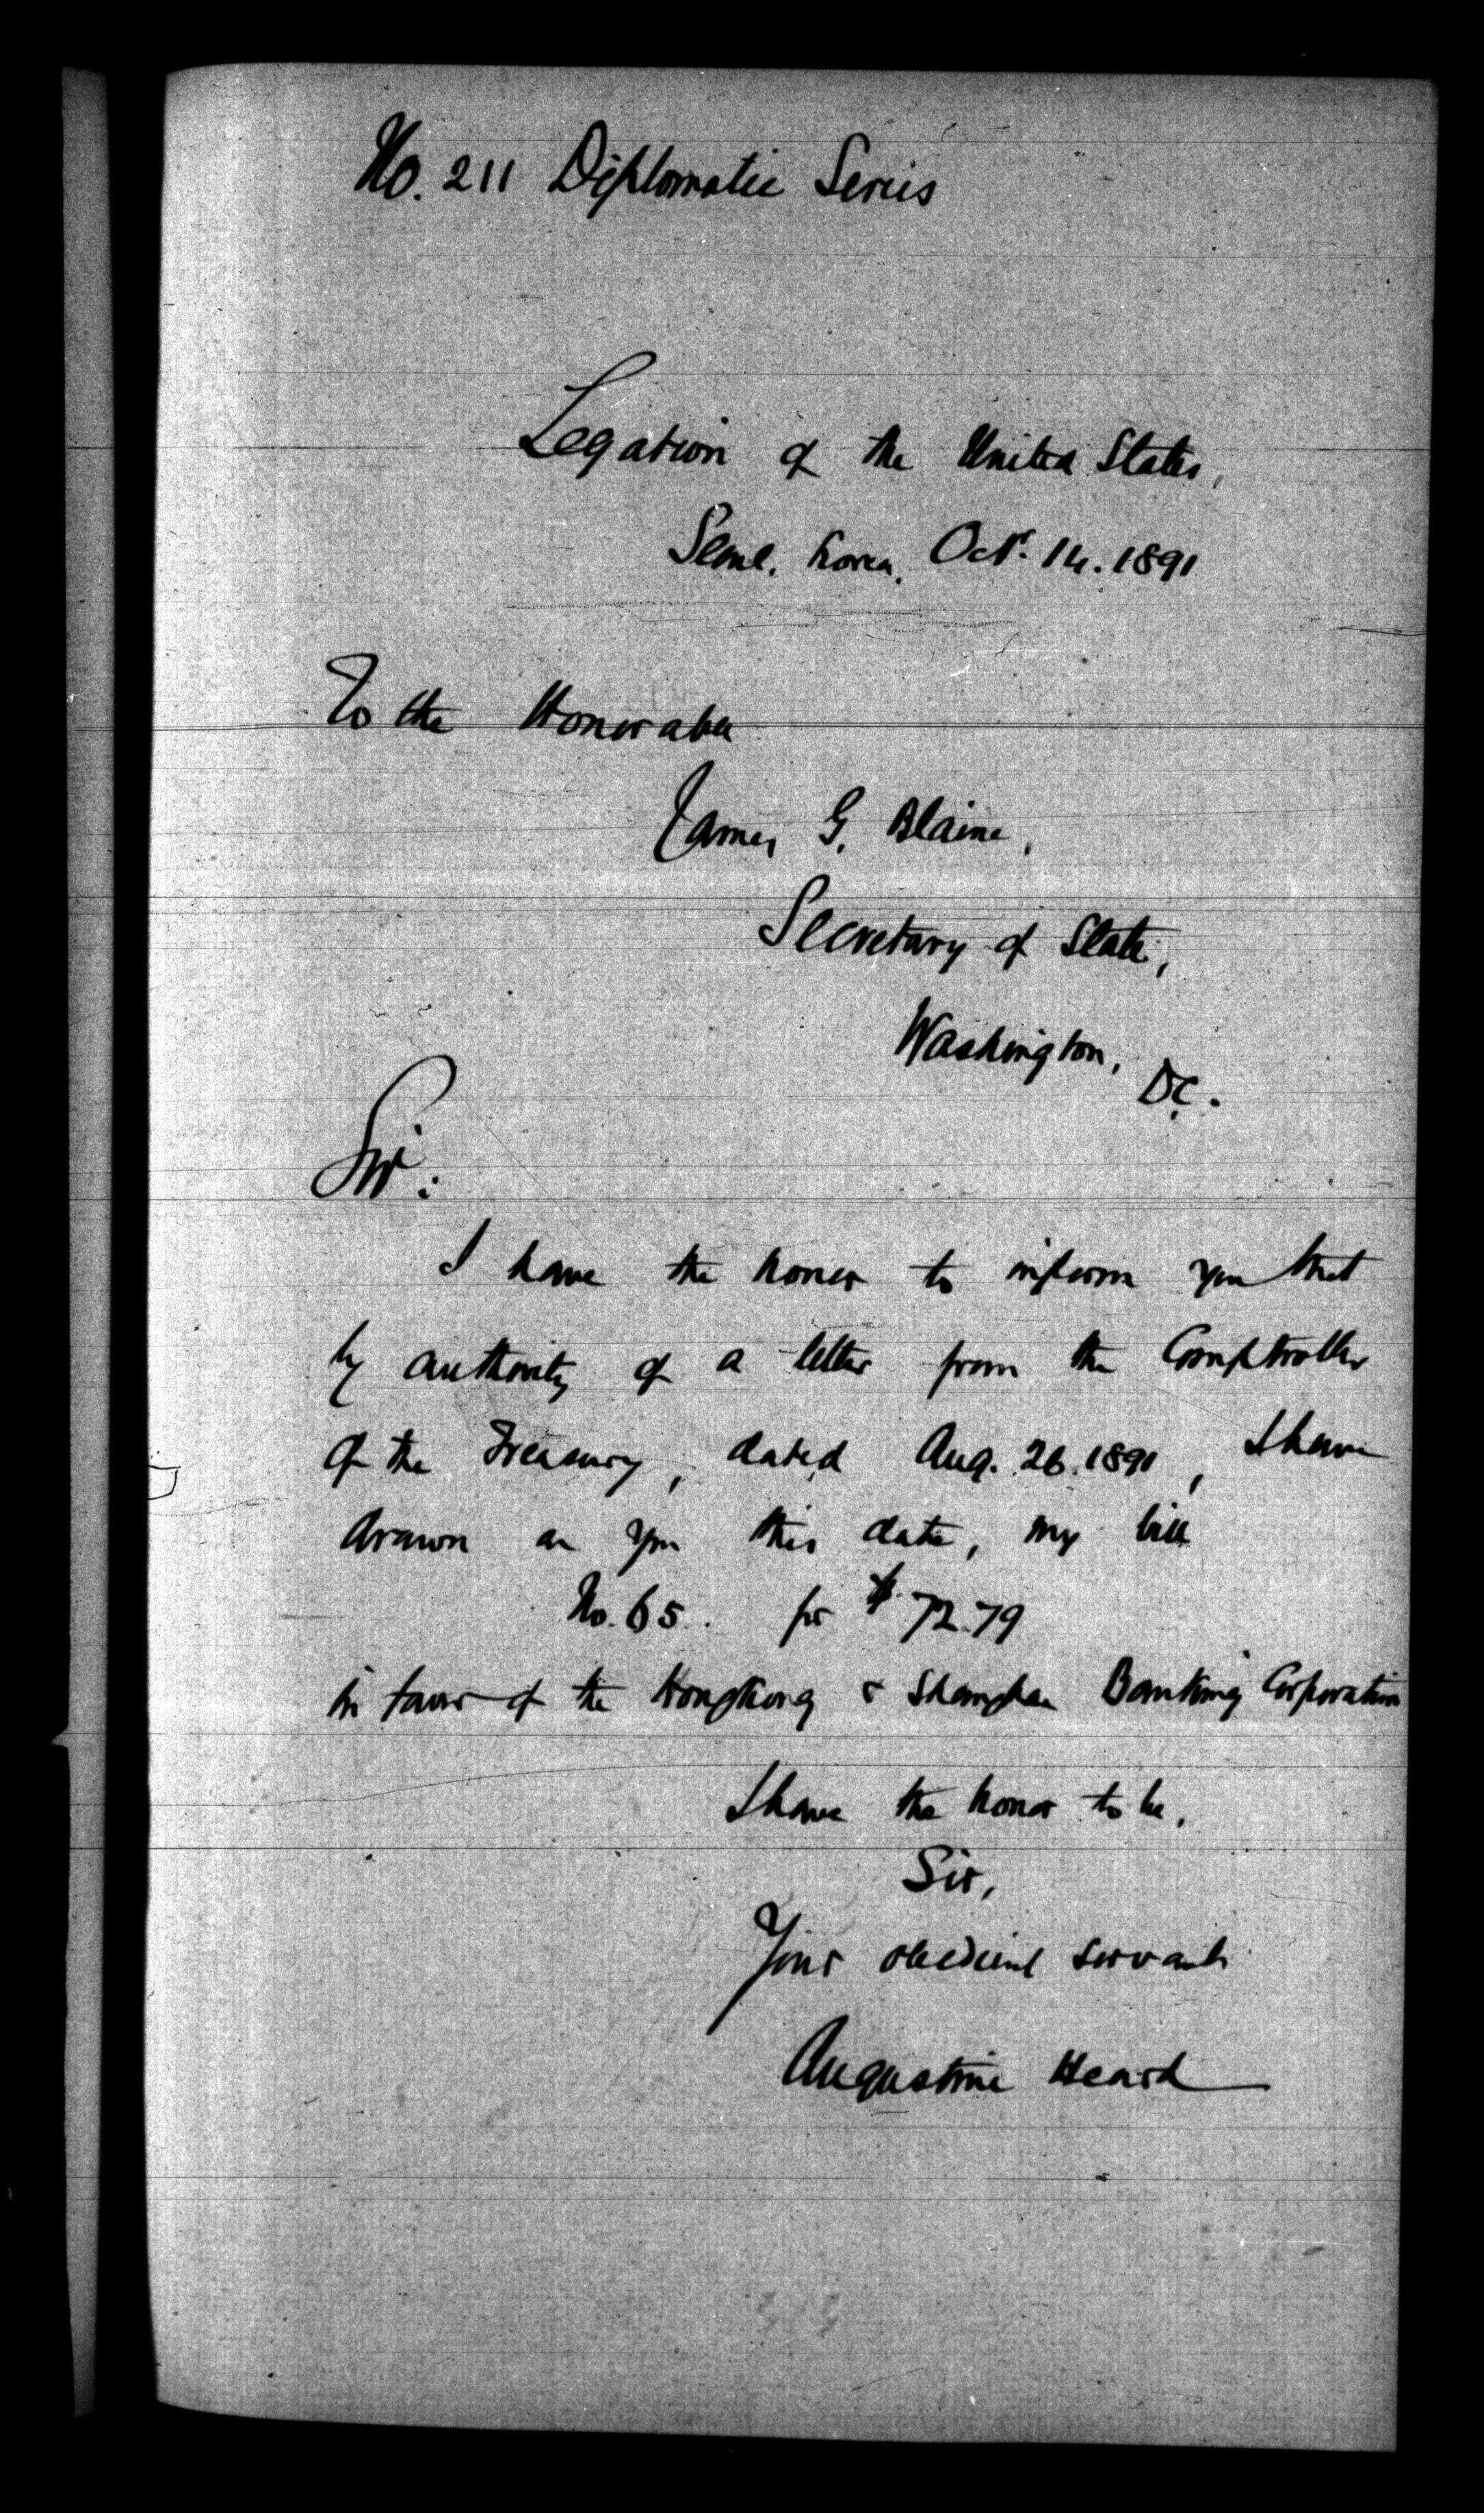 No. 211 Diplomatic Series
Legation of the United States,
Seoul. Korea. Oct. 14. 1891
To the Honorable
James G. Blaine,
Secretary of State,
Washington,
D.C.
Sir:
I have the honor to inform you that
by authority of a letter from the Comptroller
of the Treasury, dated Aug. 26. 1891, I have
drawn on you this date, my bill
No. 65. for $72.79
in favor of the Hongkong & Shanghai Banking Corporation
I have the honor to be,
Sir,
Your obedient servant
Augustine Heard